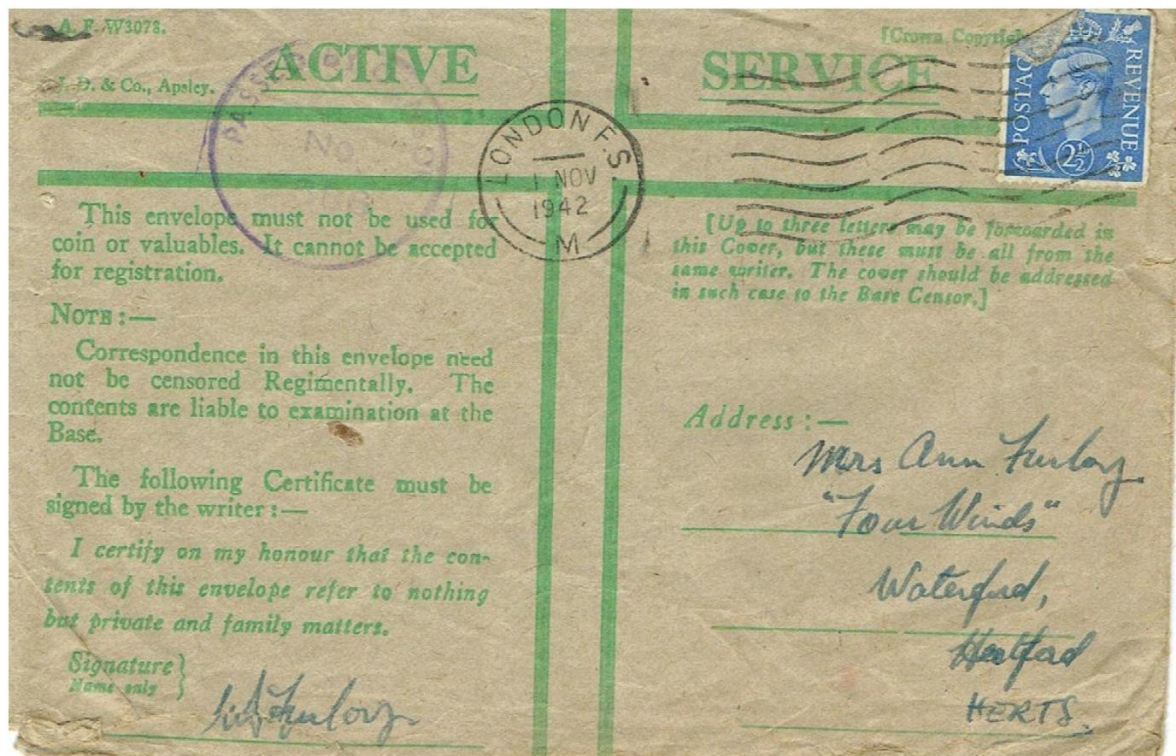 A. F. W3078.
[Crown Copyright
ACTIVE SERVICE
J. D. & Co., Apsley.
POSTAGE REVENUE
2½D
PASSED
No
LONDON F.S.
1 NOV
1942
M
This envelope must not be used for
coin or valuables. It cannot be accepted
for registration.
NOTE:—
Correspondence in this envelope need
not be censored Regimentally. The
contents are liable to examination at the
Base.
The following Certificate must be
signed by the writer:—
I certify on my honour that the con-
tents of this envelope refer to nothing
but private and family matters.
Signature
Name only
Furlong
[Up to three letters may be forwarded in
this Cover, but these must be all from the
same writer. The cover should be addressed
in such case to the Base Censor.]
Address:—
Mrs Ann Furlong
"Four Winds"
Waterford,
Hertford
HERTS.